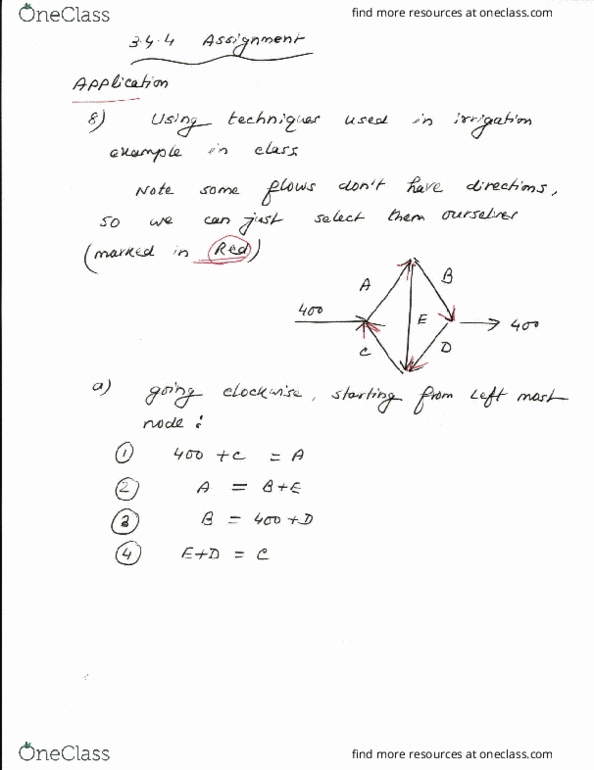 OneClass
find more resources at oneclass.com
3.4.4 Assignment
Application
8) Using techniques used in irrigation
example in class.
Note some flows don't have directions,
so we can just select them ourselves
(marked in Red)
A
B
400
E
400
C
D
a) going clockwise, starting from left most
node :
① 400 + C = A
② A = B+E
③ B = 400 + D
④ E+D = C
OneClass
find more resources at oneclass.com